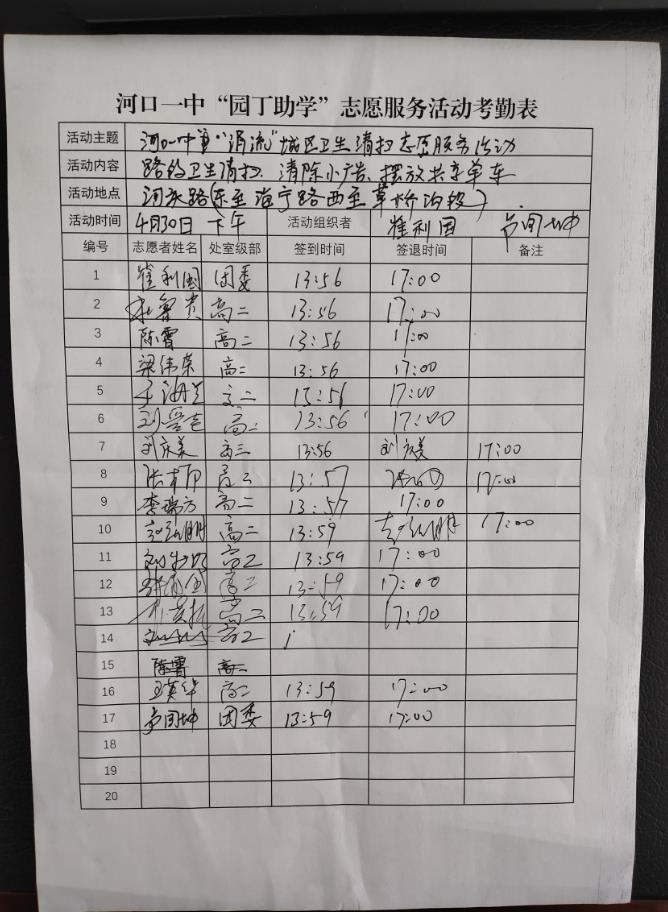 河口一中“园丁助学”志愿服务活动考勤表
活动主题 河口一中 “涓流”城区卫生清扫志愿服务活动
活动内容 路的卫生清扫、清除小广告、摆放共享单车
活动地点 河滨路(东至海宁路西至草桥沟段)
活动时间 4月30日 下午 活动组织者 崔利国
编号 志愿者姓名 处室级部 签到时间 签退时间 备注
1 崔利国 团委 13:56 17:00
2 高二 13:56 17:00
3 陈霄 高二 13:56 17:00
4 梁伟荣 高二 13:56 17:00
5 13:56 17:00
6 高二 13:56 17:00
7 刘庆美 高三 13:56 刘庆美 17:00
8 13:57 17:00
9 李瑞方 高二 13:57 17:00
10 高二 13:59 17:00
11 高二 13:59 17:00
12 高二 13:59 17:00
13 高二 13:59 17:00
14 高二
15 陈霄 高二
16 王英华 高二 13:59 17:00
17 团委 13:59 17:00
18
19
20